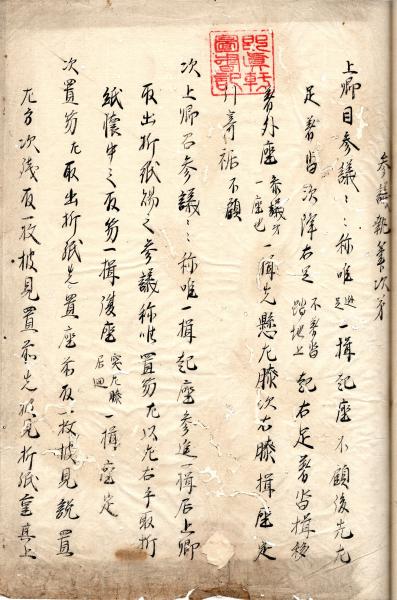 参議執筆次第
上卿目参議〻〻称唯 逃足 一揖起座不顧後先左
足著沓次降右足 不著沓踏地上 起右足著沓揖移
著外座 参議方一座也 一揖先懸左膝次右膝揖座定
引寄裾不顧
次上卿召参議〻〻称唯一揖起座参進一揖居上卿
取出折紙賜之参議称唯置笏左以左右手取折
紙懐中之取笏一揖復座 突左膝居廻 一揖座定
次置笏左取出折紙先置座前取一枚披見説置
左方次残取一枚披見置前先披見折紙重其上